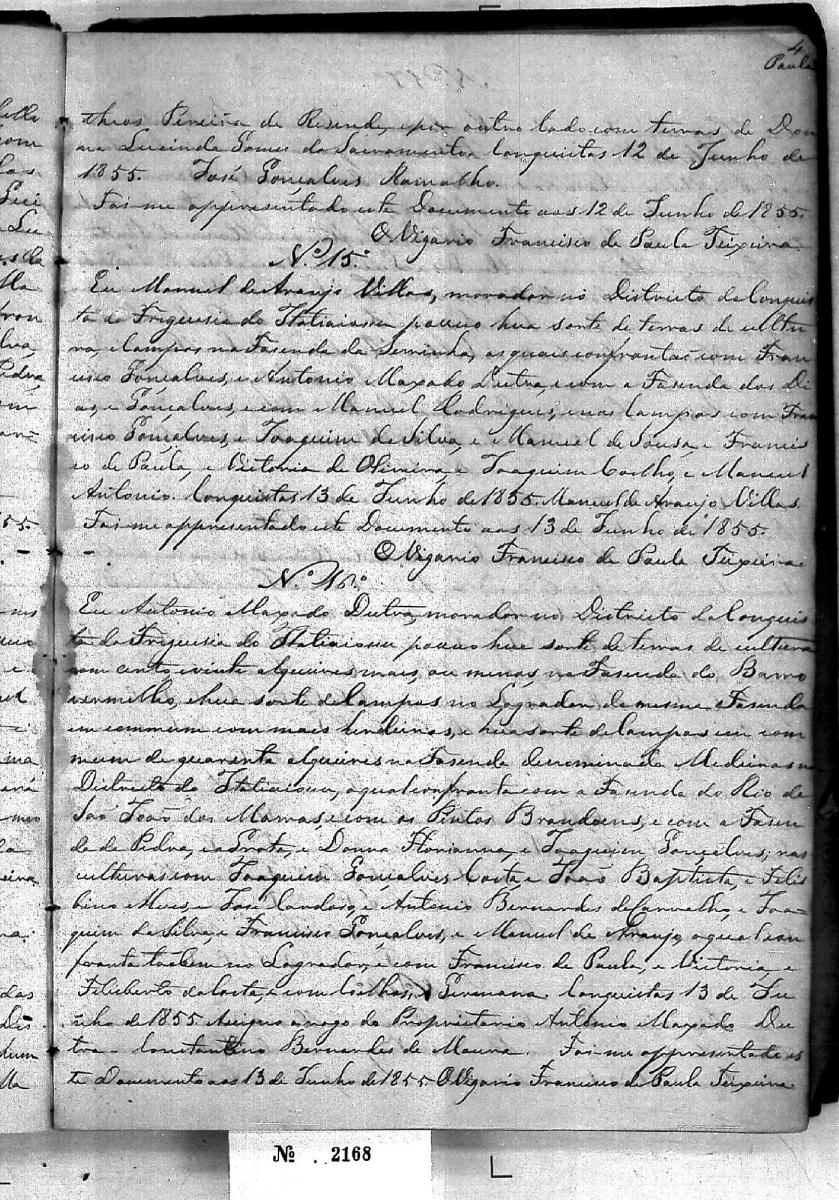 4
Paula
theos Pereira de Resende, e por outro lado com terras de Don
na Lucinda Gomes do Sacramento. Conquistas 12 de Junho de
1855. José Gonçalves Ramalho.
Foi-me appresentado este Documento aos 12 de Junho de 1855.
O Vigario Francisco de Paula Teixeira
N.º 15.º
Eu Manuel de Araujo Villas, morador no Districto da Conquis
ta da Freguesia do Itatiaiossu possuo hua sorte de terras de cultu
ra, e Campos na Fasenda da Serrinha, as quais confrontaõ com Fran
cisco Gonçalves, e Antonio Maxado Dutra, e com a Fasenda dos Di
as, e Gonçalves, e com Manuel Rodrigues, e nos Campos com Fran
cisco Gonçalves, e Joaquim da Silva, e Manuel de Sousa, e Francis
co de Paula, e Victoria de Oliveira, e Joaquim Coelho, e Manuel
Antonio. Conquistas 13 de Junho de 1855 Manuel de Araujo Villas.
Foi-me appresentado este Documento aos 13 de Junho de 1855.
O Vigario Francisco de Paula Teixeira
N.º 16.º
Eu Antonio Maxado Dutra, morador no Districto da Conquis
ta da Freguesia do Itatiaiossu possuo hua sorte de terras de cultura
com cento e vinte alqueires mais, ou menos, na Fasenda do Barro
vermelho, e hua sorte de Campos no Logrador da mesma Fasenda
em commum com mais herdeiros, e hua sorte de Campos em com
mum de quarenta alqueires na Fasenda denominada Medeiros no
Districto do Itatiaiossu, a qual confronta com a Fasenda do Rio de
Saõ Joaõ dos Marras, e com os Pintos Brandoens, e com a Fasen
da de Pedra, e a Grota, e Donna Florianna, e Joaquim Gonçalves; nas
culturas com Joaquim Gonçalves Costa, e Joaõ Baptista, e Felis
bino Alves, e José Cardoso, e Antonio Bernardes de Carvalho, e Joa
quim da Silva, e Francisco Gonçalves, e Manuel de Araujo, a qual con
fronta tãobem no Logrador, e com Francisco de Paula, e Victoria, e
Felisberto da Costa, e com Coelhos, e Germana. Conquistas 13 de Ju
nho de 1855 Assigno a rogo do Proprietario Antonio Maxado Du
tra - Constantino Bernardes de Moura. Foi-me appresentado es
te Documento aos 13 de Junho de 1855 O Vigario Francisco de Paula Teixeira
Nº 2168